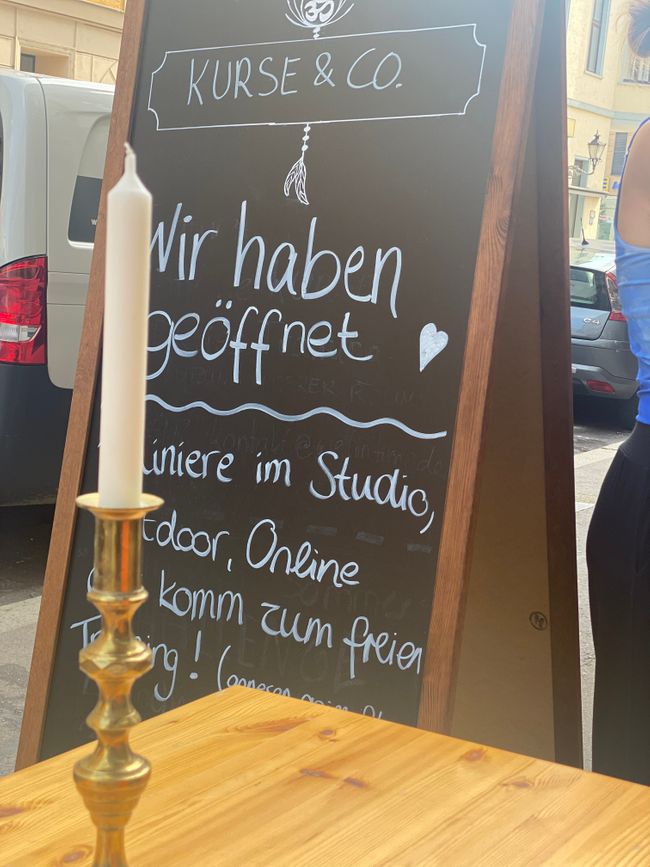 ॐ
KURSE & CO.
Wir haben
geöffnet
iniere im Studio,
tdoor, Online
komm zum freien
Training! (
C4